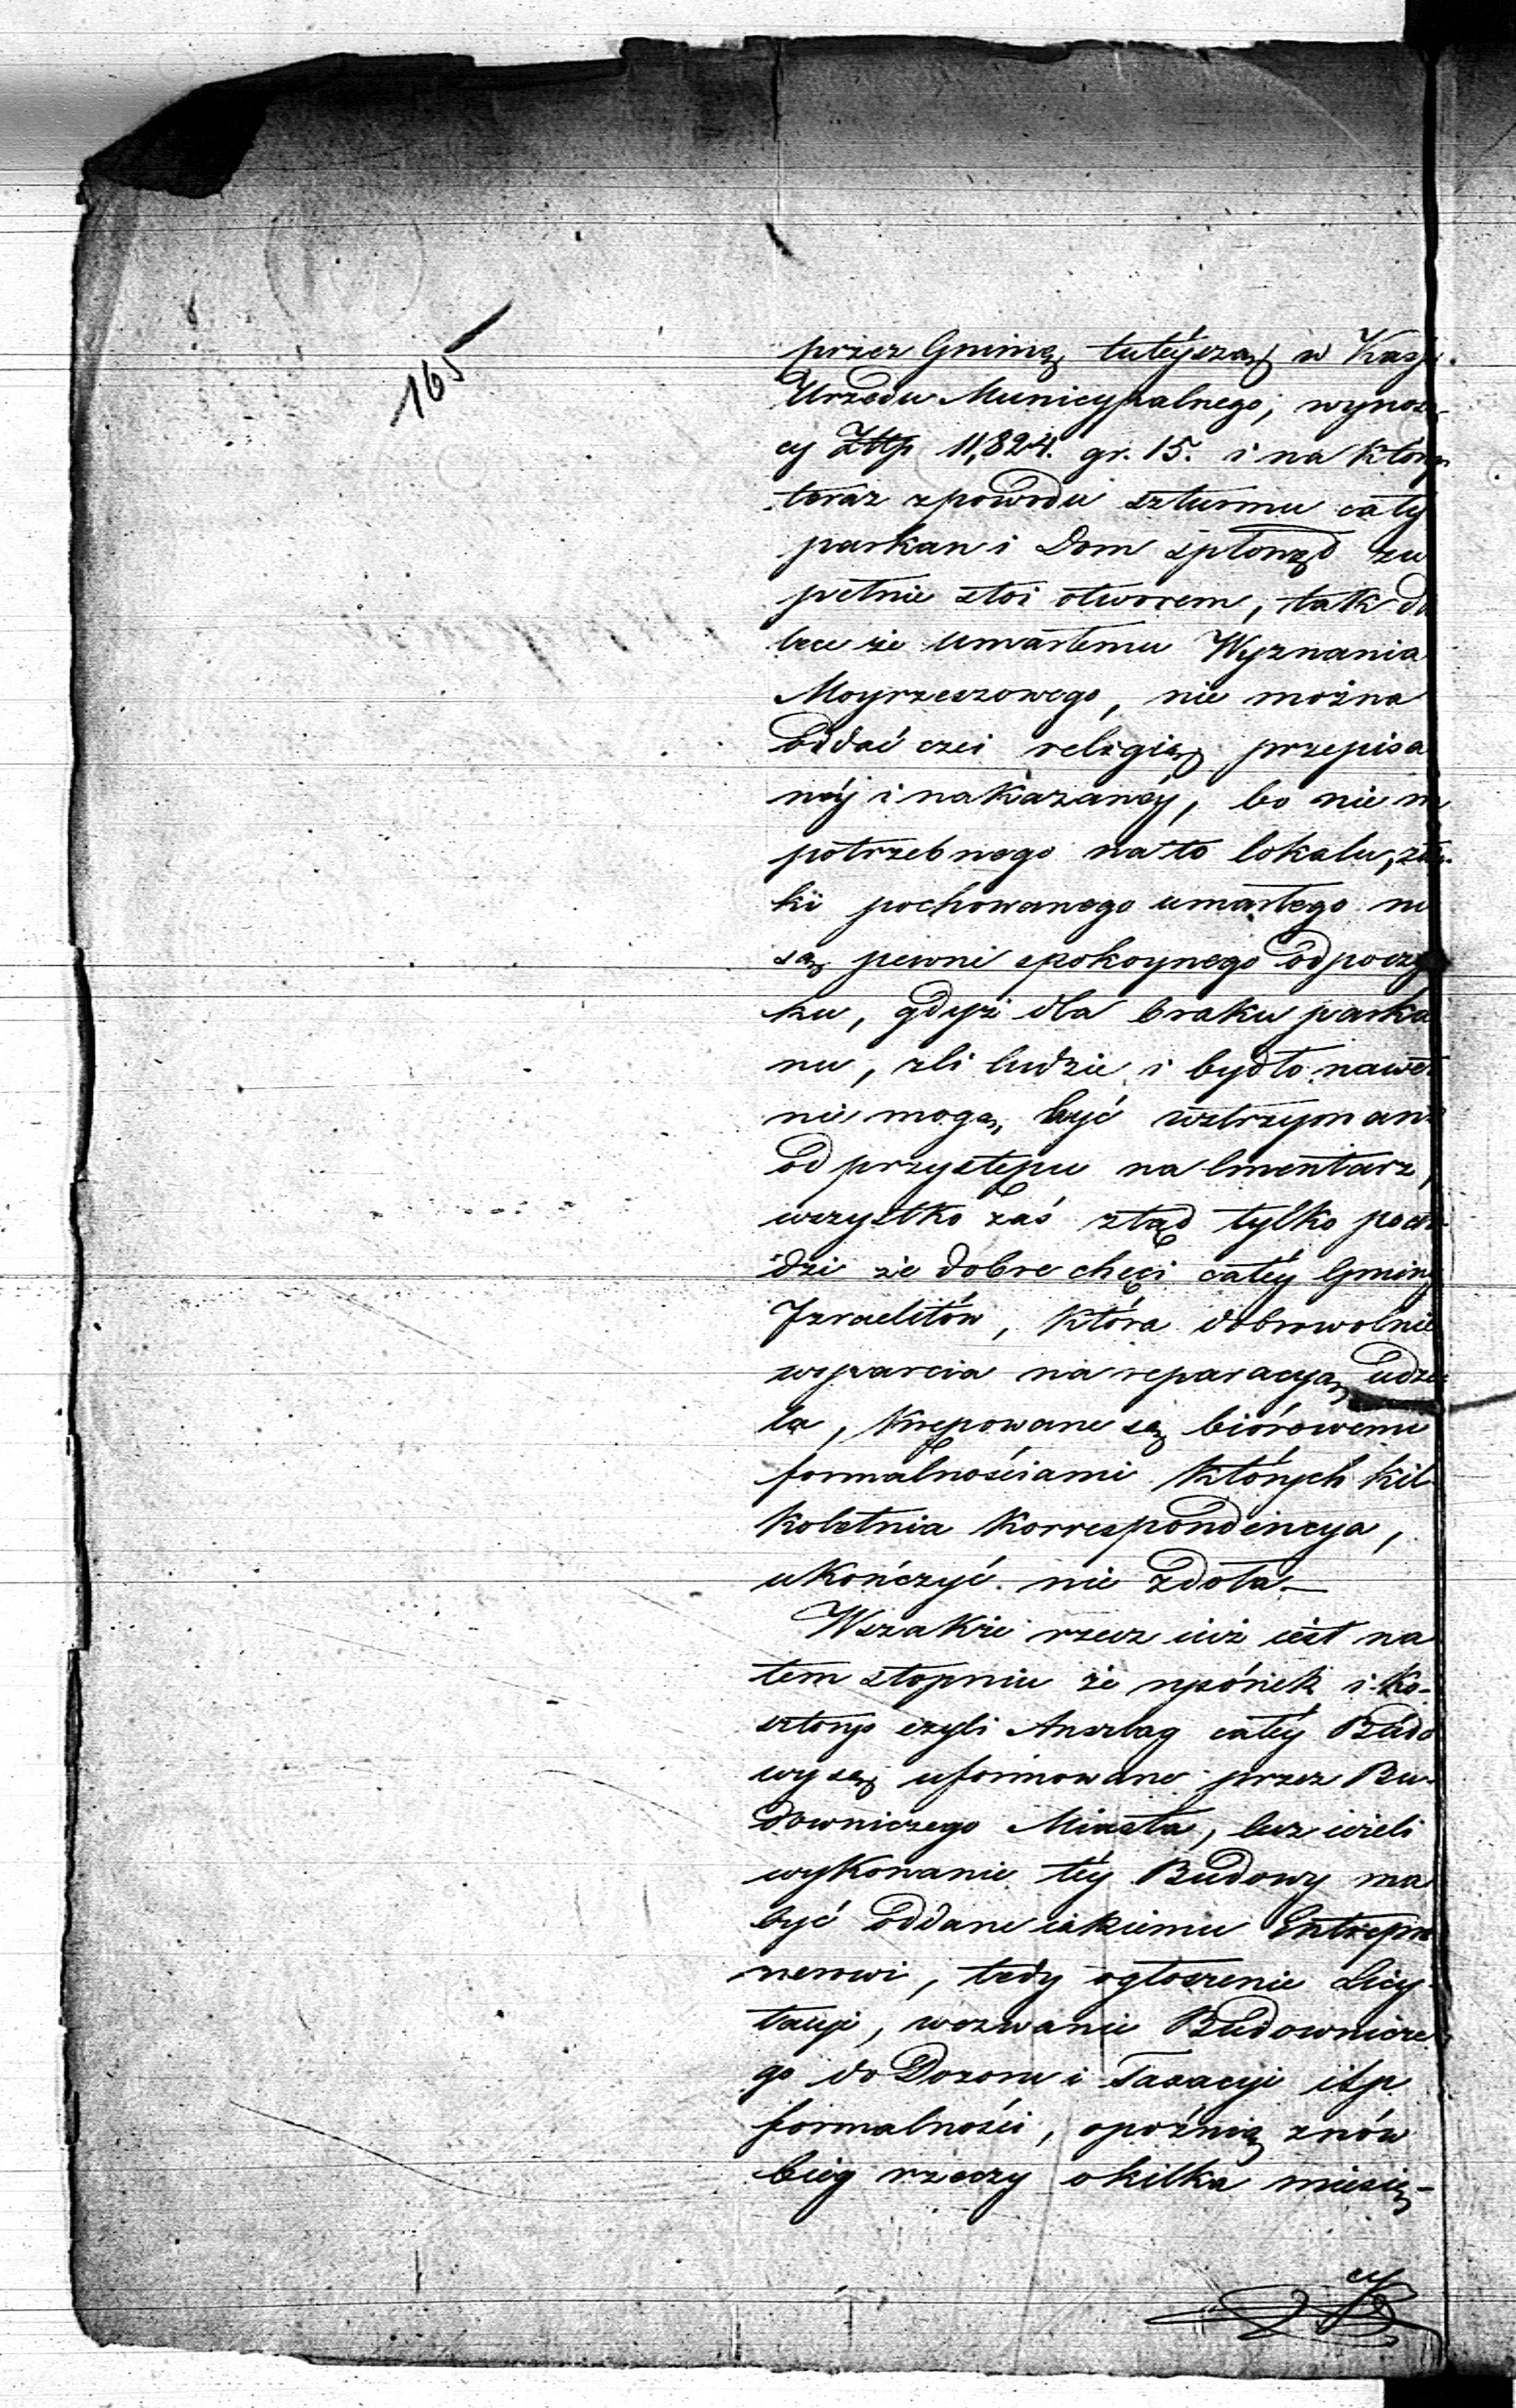 165
przez Gminę tutéyszą w Kasse
Urzędu Municypalnego, wynoszą-
cy Złtp 11,824. gr. 15. i na który
teraz zpowodu szturmu cały
parkan i Dom spłonął zu
pełnie stoi otworem, tak da
lece że umarłemu Wyznania
Moyżeszowego, nie można
oddać czci religią przepisa
néj i nakazanéy, bo nie m
potrzebnego na to lokalu,
ki pochowanego umarłego nie
są pewni spokoynego odpoczy
ku, gdyż dla braku parka
nu, źli ludzie i bydło nawet
nie mogą być wstrzyman
od przystępu na Cmentarz,
wszystko zaś ztąd tylko pocho-
dzi że dobre chęci całéy Gminy
Izraelitów, która dobrowolnie
wsparcia na reparacyą udzie
la, krępowane są biórowemi
formalnościami których kil-
koletnia Korrespondencya,
ukończyć nie zdoła_
Wszakże rzecz iuż iest na
tem stopniu że rysónek i ko-
sztorys czyli Anszlag całéy Budo
wy są uformowane przez Bu-
downiczego Miasta, lecz ieżeli
wykonanie téy Budowy ma
być oddane iakiemu Entrepre
nerowi, tedy ogłoszenie Licy-
tacyi, wezwanie Budownicze
go do Dozoru i Taxacyi itp
formalności, opóźnią znów
bieg rzeczy o kilka miesię-
cy